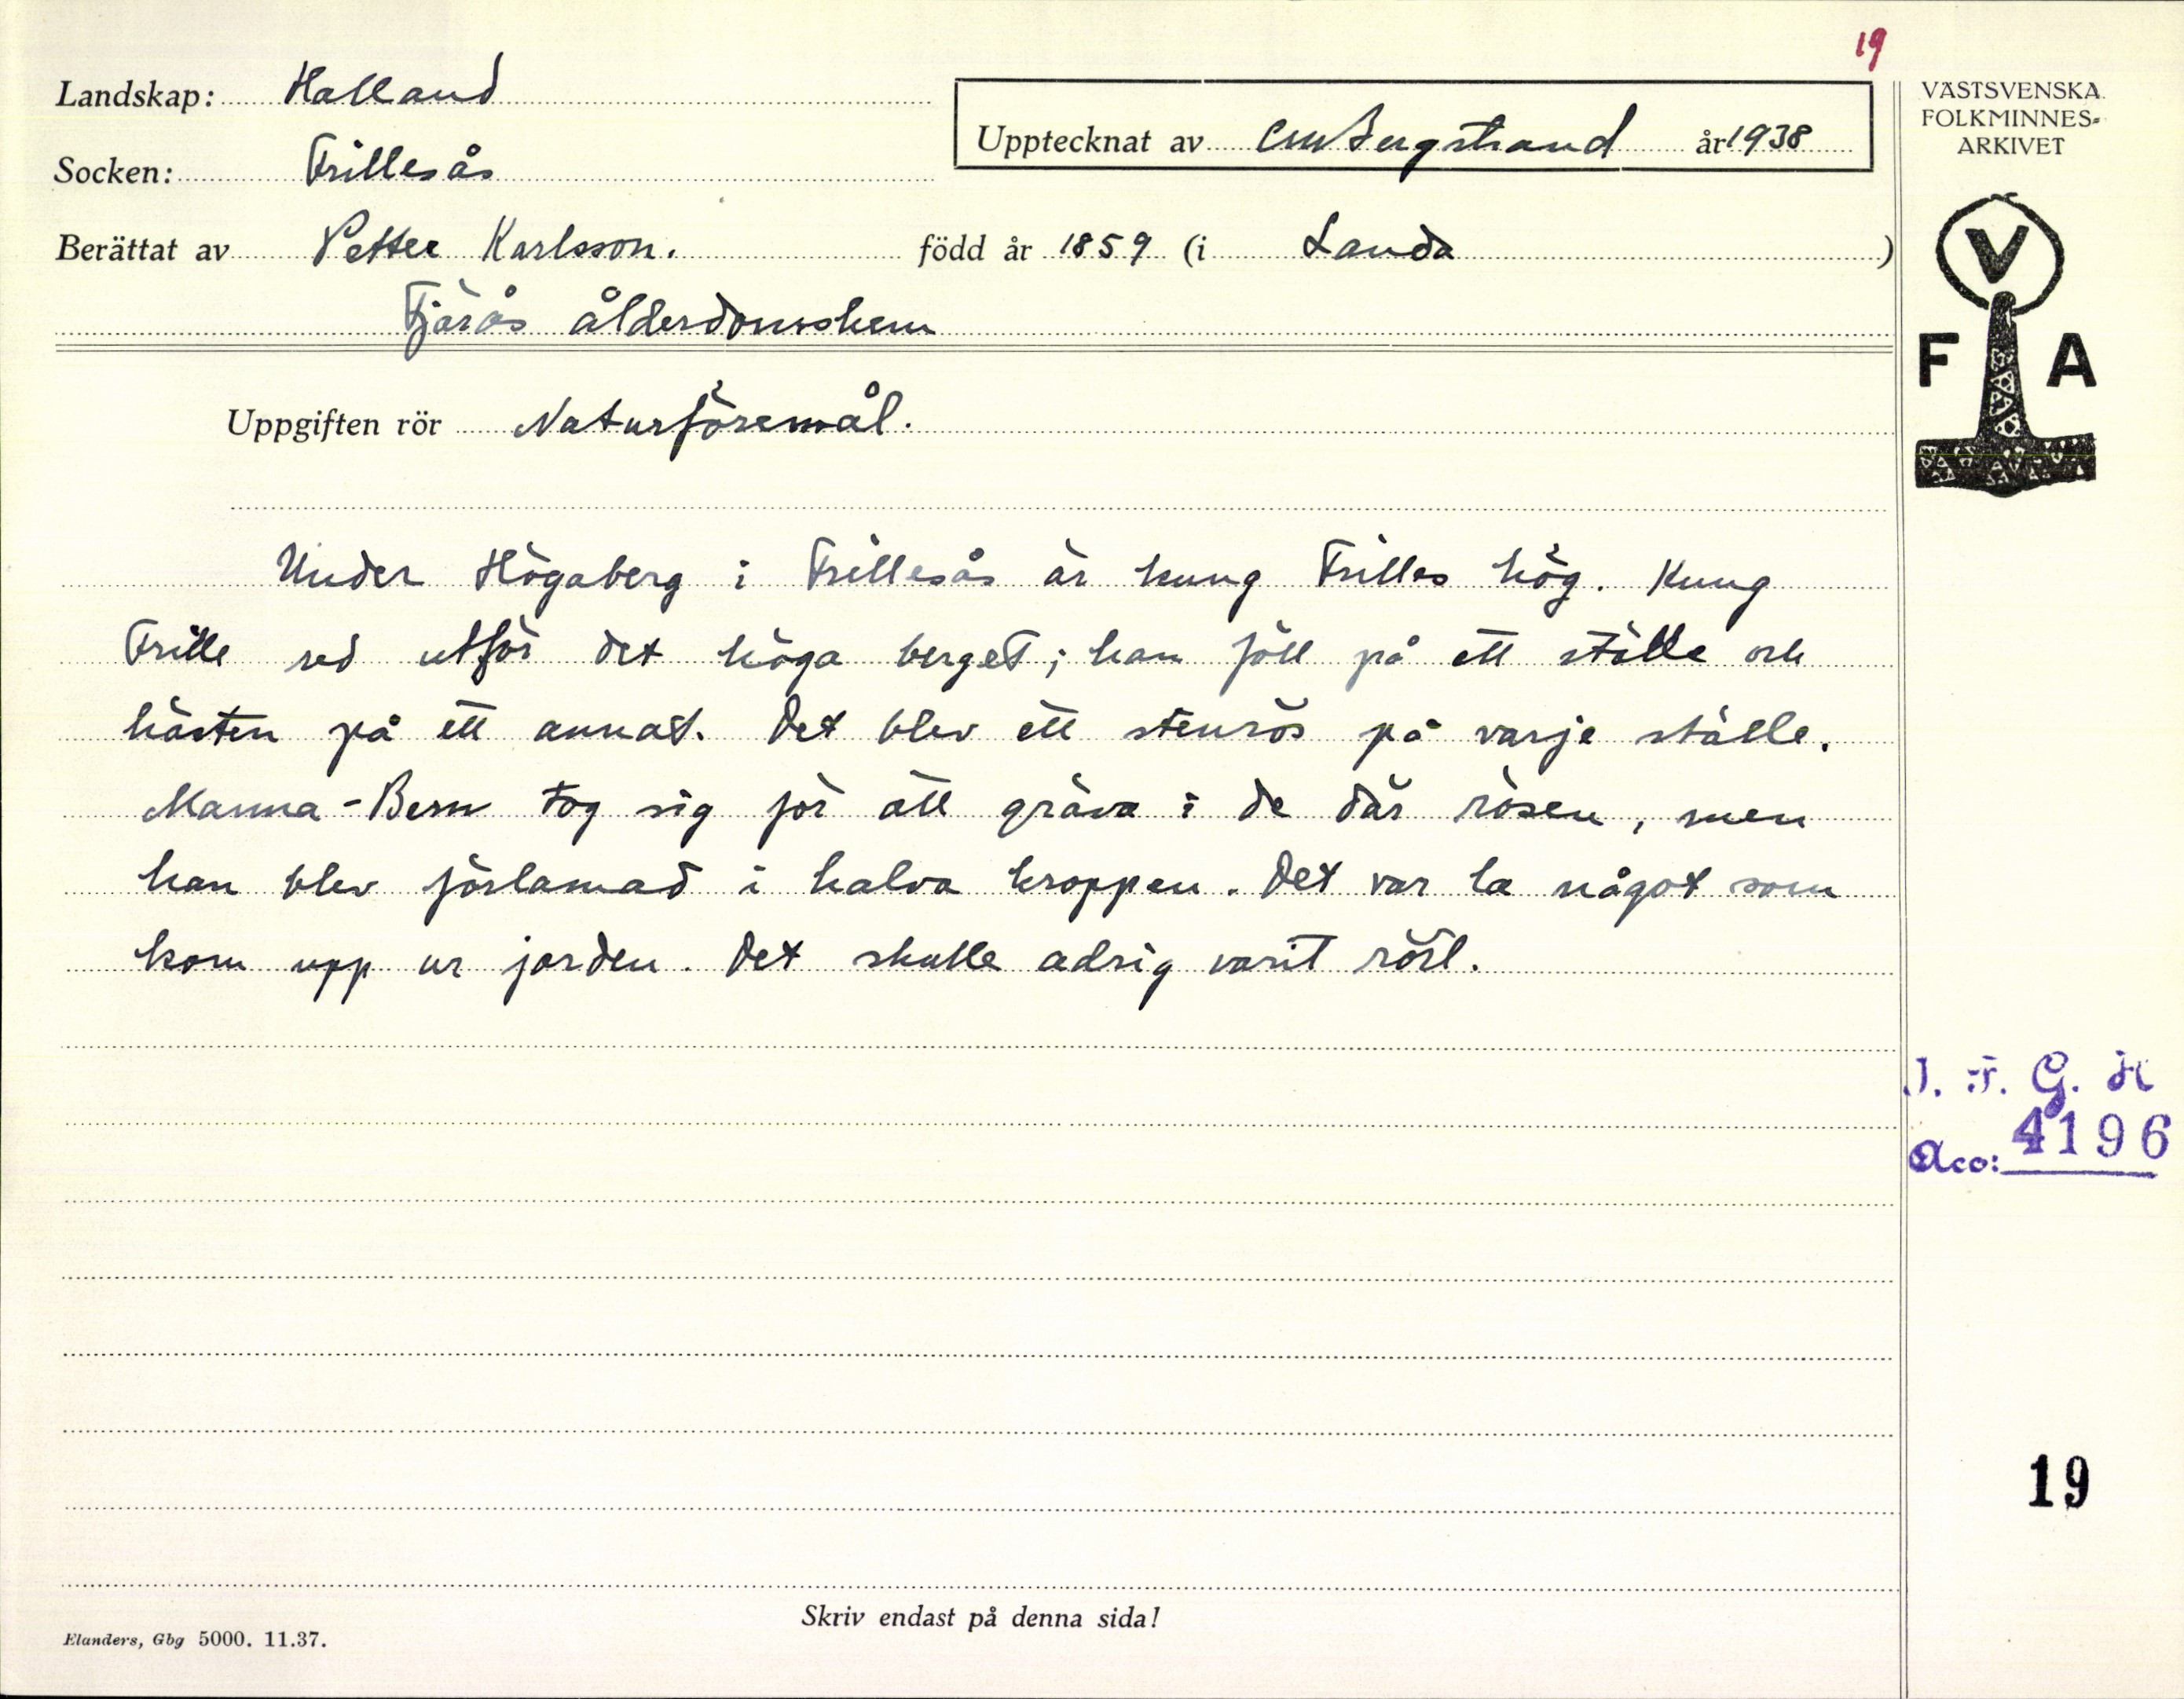 19
Landskap: Halland
Upptecknat av CMBergstrand år 1938
VÄSTSVENSKA
FOLKMINNES-
ARKIVET
Socken: Frillesås
Berättat av Petter Karlsson. född år 1859 (i Landa)
Fjärås ålderdomshem
V
F A
Uppgiften rör Naturföremål.
Under Högaberg i Frillesås är kung Frilles hög. Kung
Frille red utför det höga berget; han föll på ett ställe och
hästen på ett annat. Det blev ett stenrös på varje ställe.
Manna-Bern tog sig för att gräva i de där rösen, men
han blev förlamad i halva kroppen. Det var la något som
kom upp ur jorden. Det skulle adrig varit rört.
I. F. G. H
Acc: 4196
19
Skriv endast på denna sida!
Elanders, Gbg 5000. 11.37.